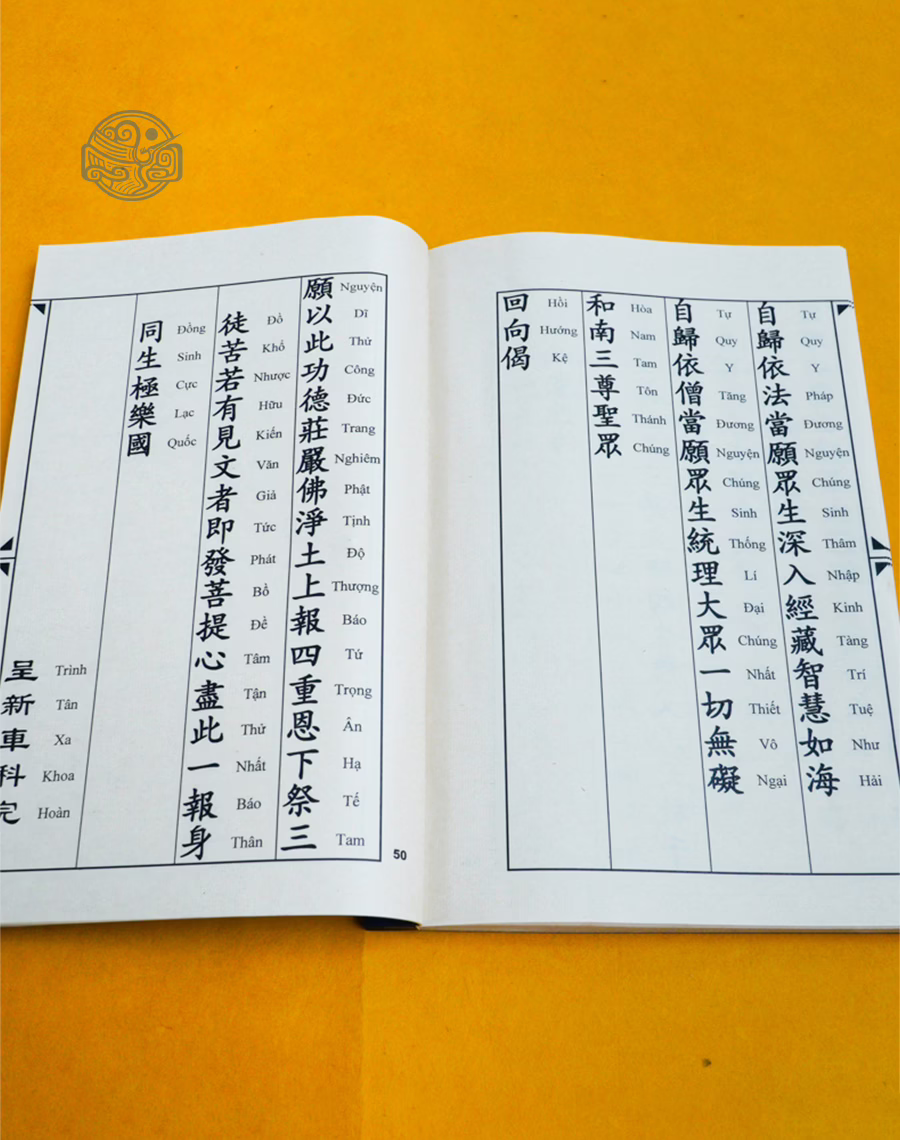 自歸依法當願眾生深入經藏智慧如海
Tự Quy Y Pháp Đương Nguyện Chúng Sinh Thâm Nhập Kinh Tàng Trí Tuệ Như Hải
自歸依僧當願眾生統理大眾一切無礙
Tự Quy Y Tăng Đương Nguyện Chúng Sinh Thống Lí Đại Chúng Nhất Thiết Vô Ngại
和南三尊聖眾
Hòa Nam Tam Tôn Thánh Chúng
回向偈
Hồi Hướng Kệ
願以此功德莊嚴佛淨土上報四重恩下祭三
Nguyện Dĩ Thử Công Đức Trang Nghiêm Phật Tịnh Độ Thượng Báo Tứ Trọng Ân Hạ Tế Tam
徒苦若有見文者即發菩提心盡此一報身
Đồ Khổ Nhược Hữu Kiến Văn Giả Tức Phát Bồ Đề Tâm Tận Thử Nhất Báo Thân
同生極樂國
Đồng Sinh Cực Lạc Quốc
呈新車科完
Trình Tân Xa Khoa Hoàn
50